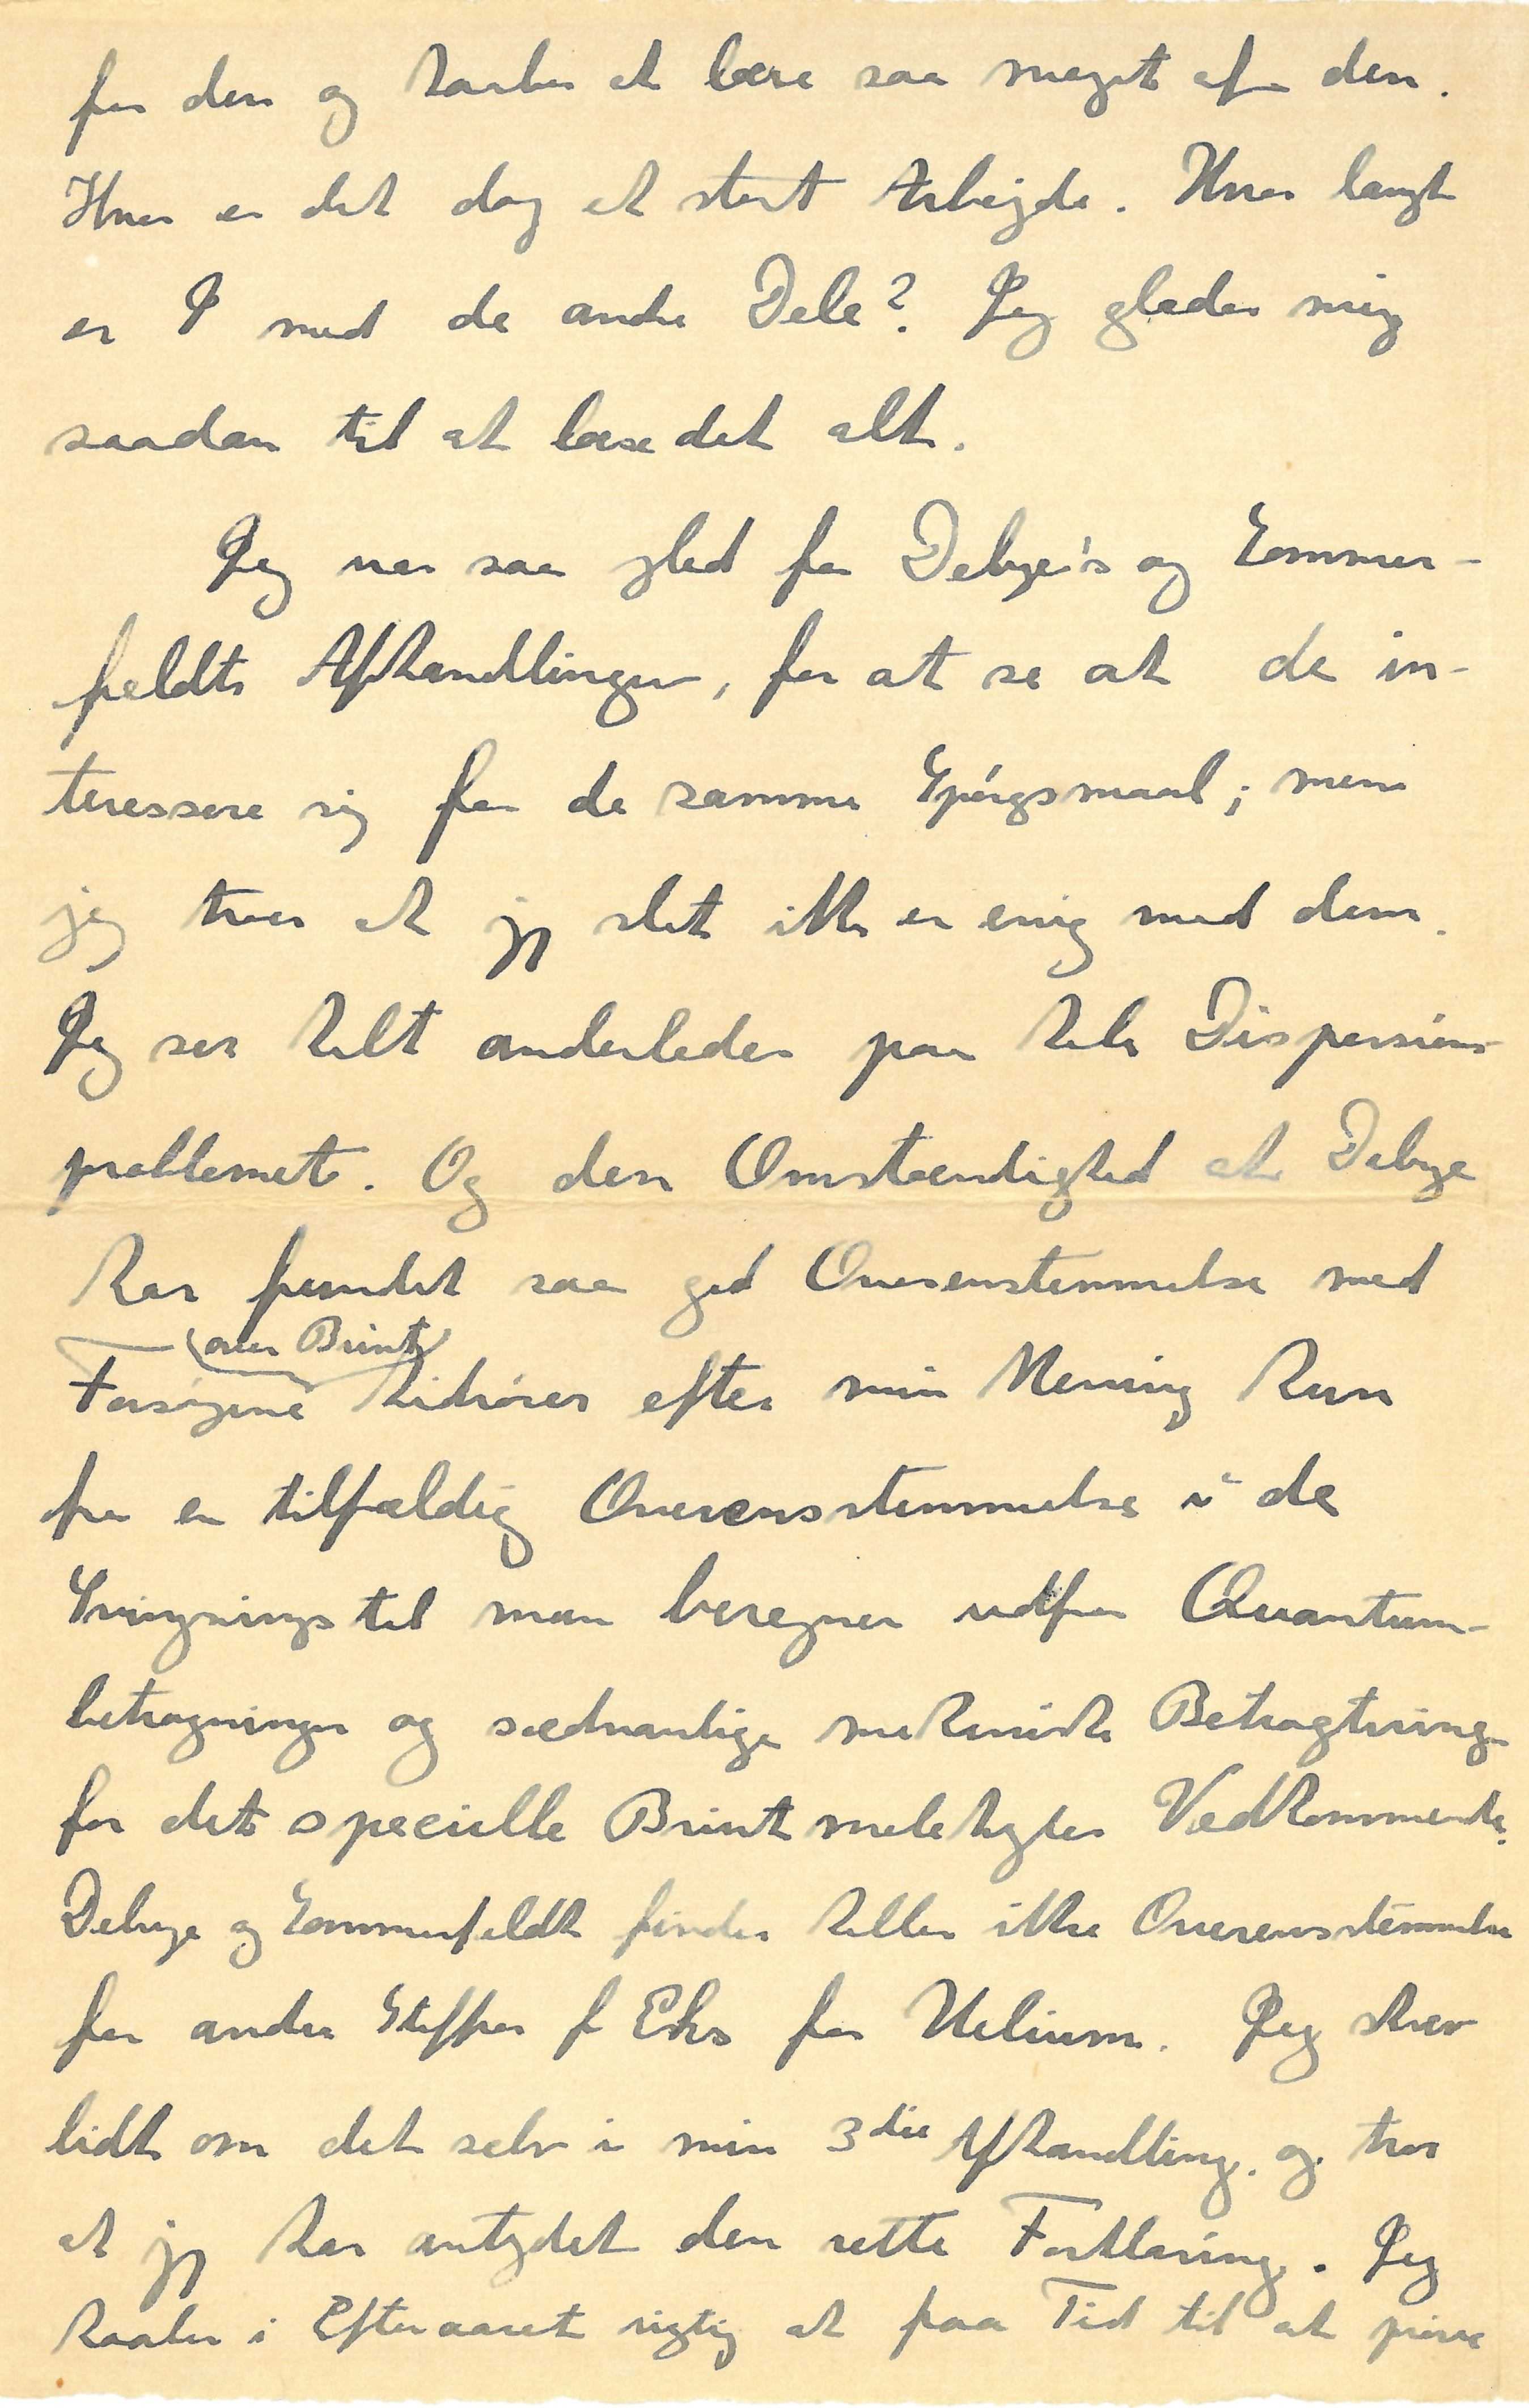 for den og haaber at lære saa meget af den.
Hvor er det dog et stort Arbejde. Hvor langt
er I med de andre Dele? Jeg glæder mig
saadan til at læse det alt.
Jeg var saa glad for Debye's og Sommer-
feldts Afhandlinger, for at se at de in-
teressere sig for de samme Spörgsmaal; men
jeg troer at jeg slet ikke er enig med dem.
Jeg ser helt anderledes paa hele Dispersions-
problemet. Og den Omstændighed at Debye
har fundet saa god Overenstemmelse med
(over Brint)
Forsøgene hidrörer efter min Mening kun
fra en tilfældig Overensstemmelse i de
Svingningstal man beregner udfra Quantum-
betragninger og sædvanlige mekaniske Betragtning
for det specielle Brintmolekyles Vedkommende.
Debye og Sommerfeldt finder heller ikke Overensstemmelse
for andre Stoffer f Eks for Helium. Jeg skrev
lidt om det selv i min 3die Afhandling. og tror
at jeg har antydet den rette Forklaring. Jeg
haaber i Efteraaret rigtig at faa Tid til at pröve